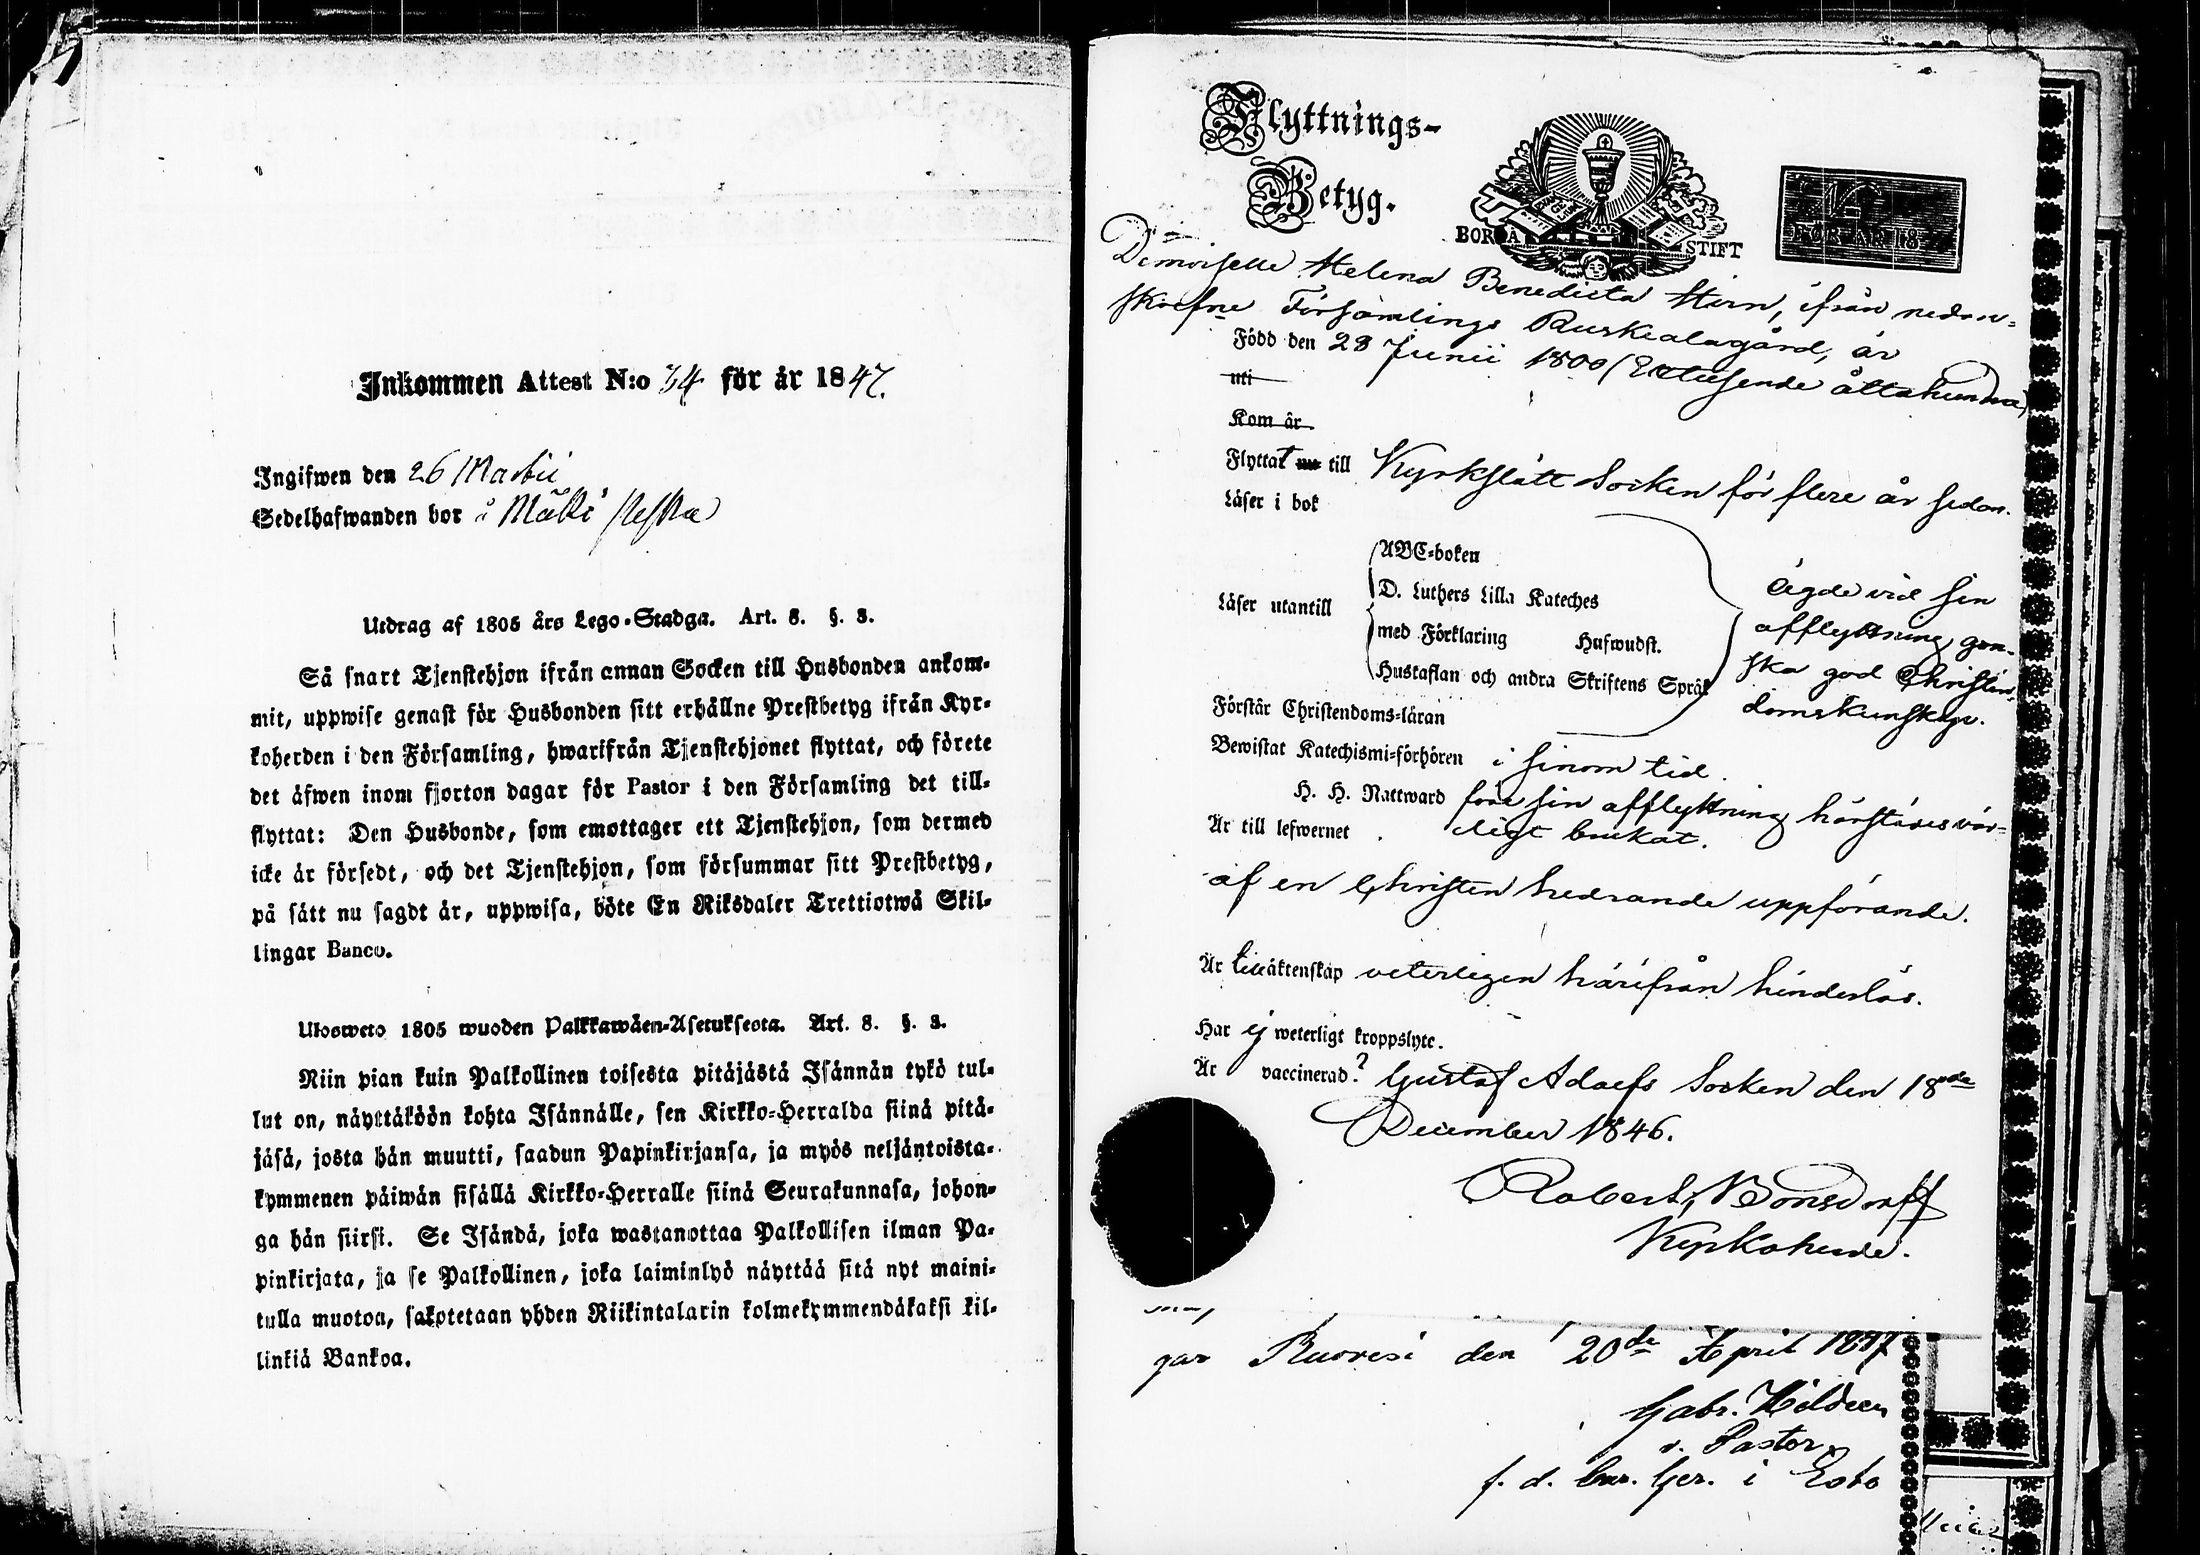 Inkommen Attest N:o 34 för år 1847.
Ingifwen den 26 Martii
Sedelhafwanden bor å Mäki
Utdrag af 1805 års Lego-Stadga. Art. 8. §. 3.
Så snart Tjenstehjon ifrån annan Socken till Husbonden ankom-
mit, uppwise genast för Husbonden sitt erhållne Prestbetyg ifrån Kyr-
koherden i den Församling, hwarifrån Tjenstehjonet flyttat, och förete
det äfwen inom fjorton dagar för Pastor i den Församling det till-
flyttat: Den Husbonde, som emottager ett Tjenstehjon, som dermed
icke är försedt, och det Tjenstehjon, som försummar sitt Prestbetyg,
på sätt nu sagdt är, uppwisa, böte En Riksdaler Trettiotwå Skil-
lingar Banco.
Ulosweto 1805 wuoden Palkkawäen-Asetuksesta. Art. 8. §. 3.
Niin pian kuin Palkollinen toisesta pitäjästä Isännän tykö tul-
lut on, näyttäköön kohta Isännälle, sen Kirkko-Herralda siinä pitä-
jäsä, josta hän muutti, saadun Papinkirjansa, ja myös neljäntoista-
kymmenen päiwän sisällä Kirkko-Herralle siinä Seurakunnasa, johon-
ga hän siirsi. Se Isändä, joka wastanottaa Palkollisen ilman Pa-
pinkirjata, ja se Palkollinen, joka laiminlyö näyttää sitä nyt maini-
tulla muotoa, sakotetaan yhden Riikintalarin kolmekymmendäkaksi kil-
linkiä Bankoa.
Flyttnings-
Betyg.
BORGÅ STIFT
FÖR ÅR 18
Demoiselle Helena Benedicta Stirn, ifrån nedan-
skrefne Församlings Ruskealagård, är
Född den 28 Junii 1800 (Ettusende åttahundra)
uti
Kom år
Flyttat nu till Kyrkslätt Socken för flere år sedan.
Läser i bok
ABC-boken
Läser utantill
D. Luthers Lilla Kateches
med Förklaring Hufwudst.
Hustaflan och andra Skriftens Språk
Ägde vid sin
afflyttning gan-
ska god Christen-
domskunskap.
Förstår Christendoms-läran
Bewistat Katechismi-förhören i sinom tid.
H. H. Nattward före sin afflyttning härstädes vär-
digt brukat.
Är till lefwernet
af en Christen hedrande uppförande.
Är till äktenskap veterligen härifrån hinderlös.
Har ej weterligt kroppslyte.
Är vaccinerad? Gustaf Adolfs Socken den 18de
December 1846.
Robert Bonsdorff
Kyrkoherde.
gar Ruovesi den 20de April 1847
Gabr. Höldeen
v. Pastor
f. d. Cur. Ger. i Esbo